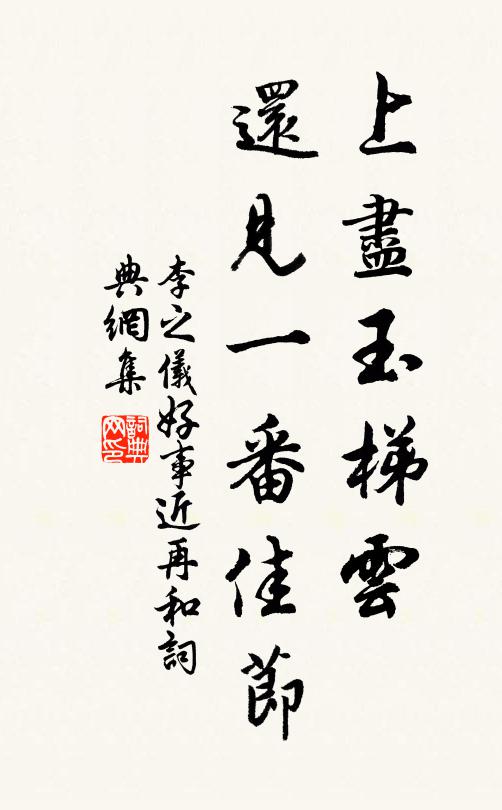 上盡玉梯雲
還見一番佳節
李之儀好事近再和詞
典網集
詞典網印